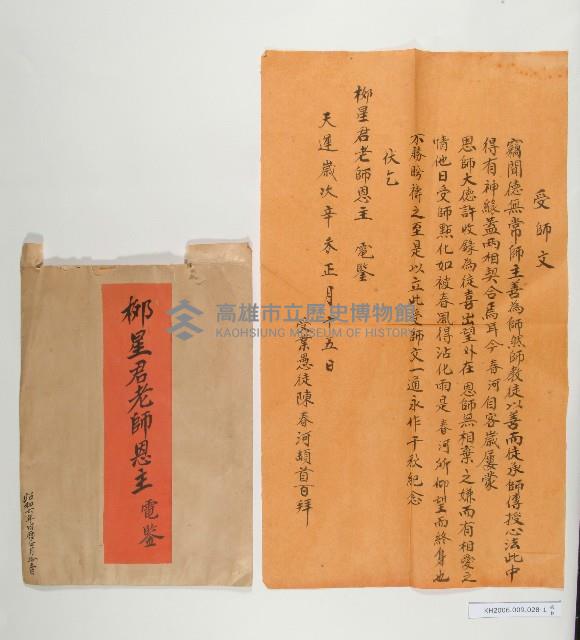 受師文
竊聞德無常師主善為師然師教徒以善而徒承師傳授心法此中
得有神緣蓋兩相契合焉耳今春河自客歲屢蒙
恩師大德許收錄為徒喜出望外在恩師無相棄之嫌而有相愛之
情他日受師點化如被春風得沾化雨是春河所仰望而終身也
不勝盼禱之至是以立此受師文一通永作千秋紀念
伏乞
柳星君老師恩主 電鑒
天運歲次辛未正月十五日
受業愚徒陳春河頓首百拜
柳星君老師恩主 電鑒
昭和六年旧曆正月拾五日
高雄市立歷史博物館
KAOHSIUNG MUSEUM OF HISTORY
KH2006.009.028-1